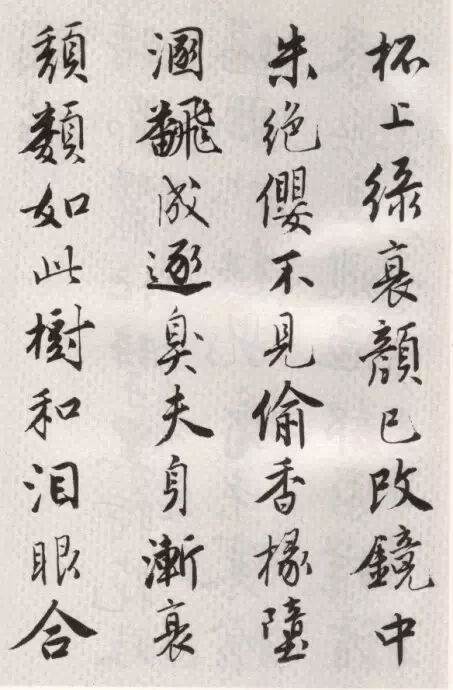 杯上綠衰顏已改鏡中
朱絶纓不見偷香掾墮
溷飜成逐臭夫身漸衰
頹類如此樹和泪眼合